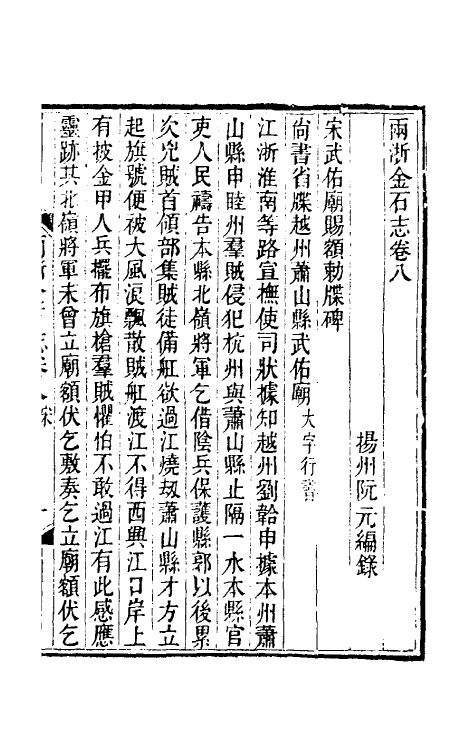 兩浙金石志卷八
揚州阮元編錄
宋武佑廟賜額勅牒碑
尚書省牒越州蕭山縣武佑廟大字行書
江浙淮南等路宣撫使司狀據知越州劉韐申據本州蕭
山縣申睦州羣賊侵犯杭州與蕭山縣止隔一水本縣官
吏人民禱告本縣北嶺將軍乞借陰兵保護縣郭以後累
次兇賊首領部集賊徒備舡欲過江燒刼蕭山縣才方立
起旗號便被大風浪飄散賊舡渡江不得西興江口岸上
有披金甲人兵擺布旗槍羣賊懼怕不敢過江有此感應
靈跡其北嶺將軍未曾立廟額伏乞敷奏乞立廟額伏乞
兩浙金石志卷八 宋 一